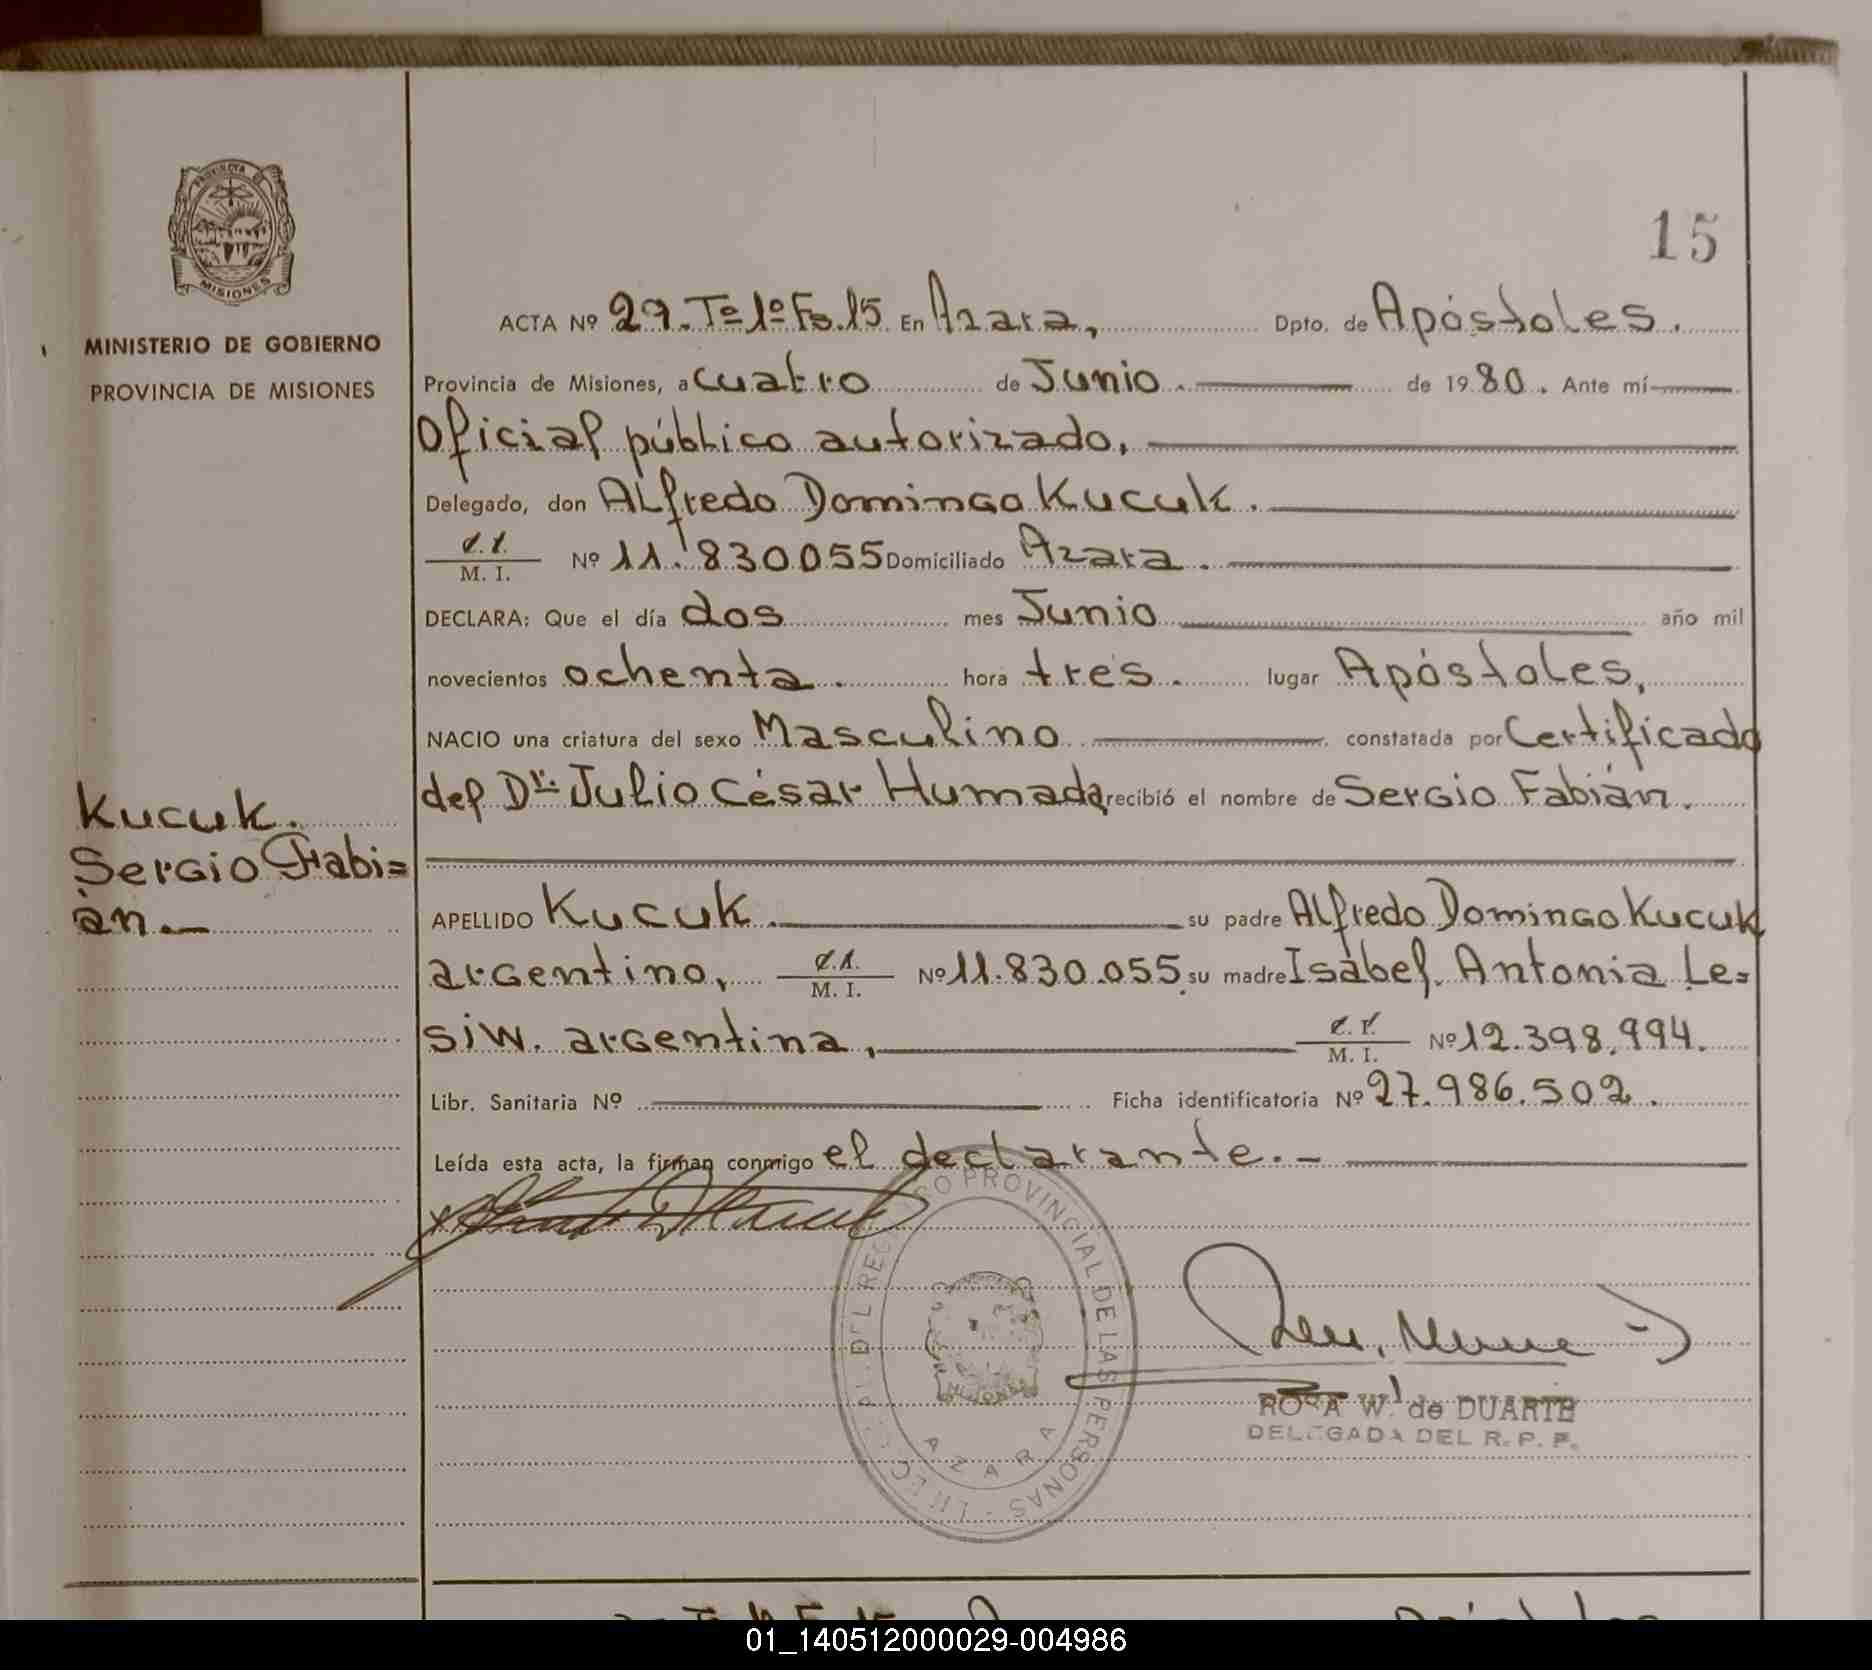 PROVINCIA DE
MISIONES
MINISTERIO DE GOBIERNO
PROVINCIA DE MISIONES
Kucuk.
Sergio Fabi=
án.
15
ACTA Nº 29. Tº 1º Fo. 15 En Azara, Dpto. de Apóstoles.
Provincia de Misiones, a cuatro de Junio. de 1980. Ante mí
Oficial público autorizado,
Delegado, don Alfredo Domingo Kucuk.
C.I.
M. I. Nº 11.830055 Domiciliado Azara.
DECLARA: Que el día dos mes Junio año mil
novecientos ochenta. hora tres. lugar Apóstoles,
NACIO una criatura del sexo Masculino constatada por Certificado
del Dr. Julio César Humada, recibió el nombre de Sergio Fabián.
APELLIDO Kucuk. su padre Alfredo Domingo Kucuk
argentino, C.I. M. I. Nº 11.830.055 su madre Isabel Antonia Le=
siw. argentina, C.I. M. I. Nº 12.398.994.
Libr. Sanitaria Nº Ficha identificatoria Nº 27.986.502.
Leída esta acta, la firman conmigo el declarante.-
DEL REGISTRO PROVINCIAL DE LAS PERSONAS
MISIONES
AZARA
ROSA W. de DUARTE
DELEGADA DEL R. P. P.
01_140512000029-004986